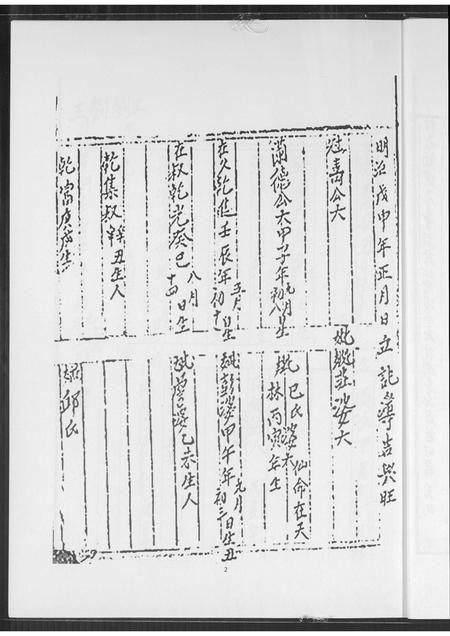 明治戊申年正月日立記簿吉興旺
壽公大
妣莊婆大
蘭德公大甲子年九月初八日生
妣巳氏婆大仙命在天
林丙寅年生
在久乾進壬辰年五月初十日生
彭婆甲午年九月初三日生丑
在叔乾光癸巳八月十四日生
曾婆乙未生人
乾集叔辛丑生人
邱氏
2